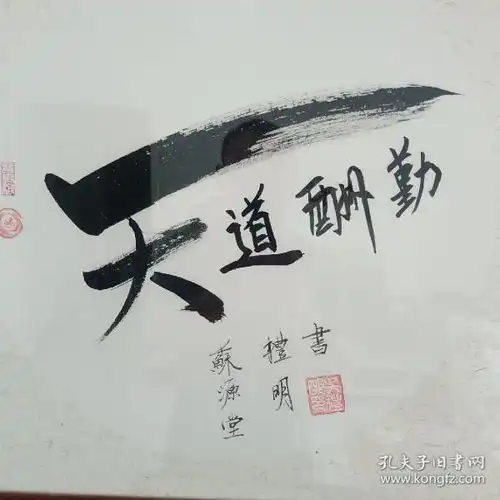 天道酬勤
書
禮明
蘇源堂
孔夫子旧书网
www.kongfz.com